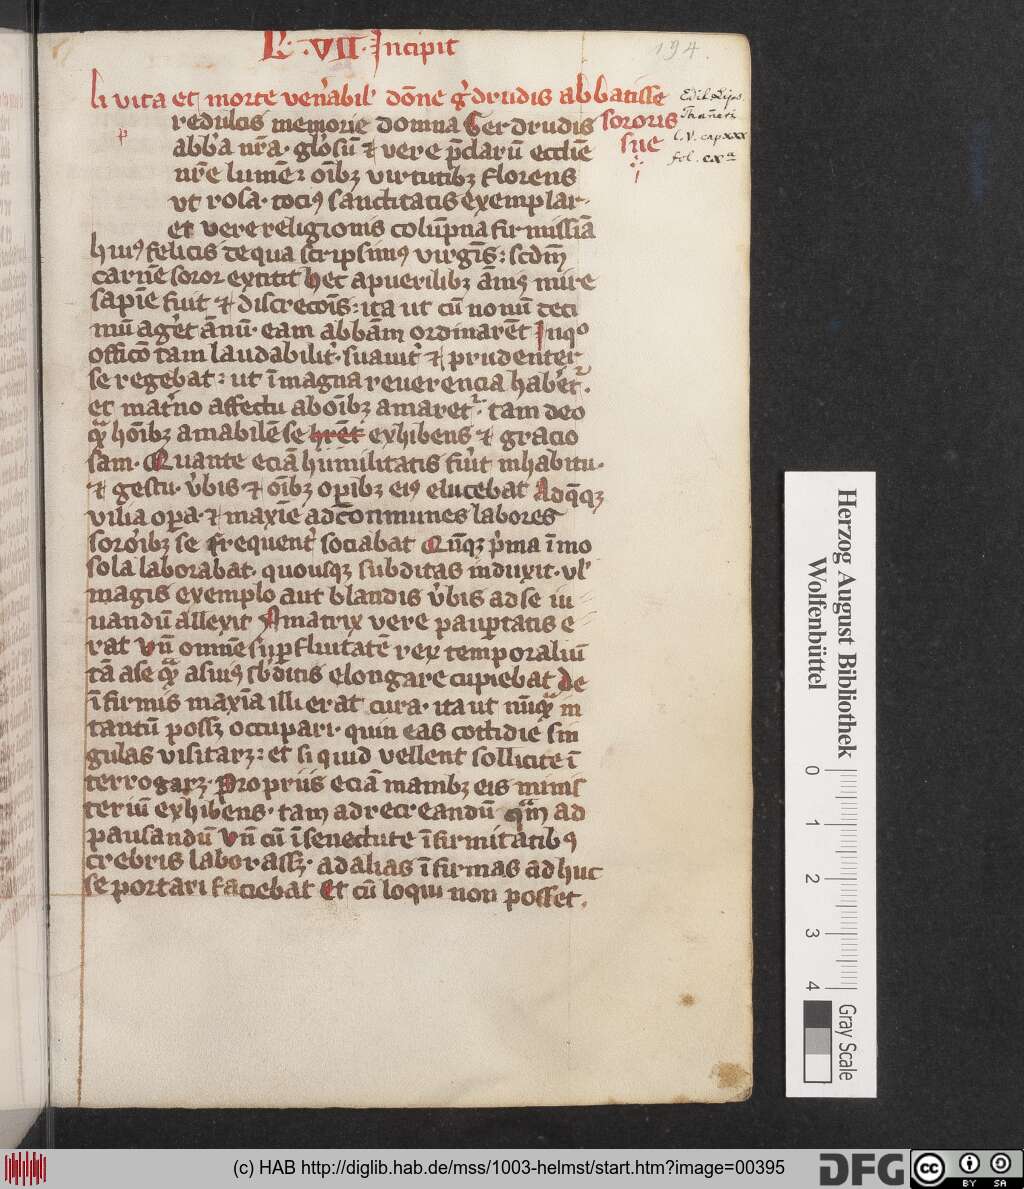 L. VII. Incipit
194.
li vita et morte ven̄abil' dōne g̓drudis abbatisse
redulcis memorie domna Gerdrudis sororis
abb̓a nr̄a. glo̓su̅ ⁊ vere p̄daru̅ eccl̄ie sue
nr̄e lume̅: oi̅bꝫ virtutibꝫ florens
vt rosa. toci9 sanctitatis exemplar.
et vere religionis colu̅pna firmissi̅a
hui9 felicis de qua scripsim9 virgi̅s: scd̅m
carne̅ soror extitit hec a puerilibꝫ a̅nis mire
sapie̅ fuit ⁊ discreco̅is: ita ut cu̅ nonu̅ deci
mu̅ ageret a̅nu̅. eam abba̅m ordinare̅t Inquo
offico̅ tam laudabilit̓. suauit̓ ⁊ prudenter
se regebat: ut i̅ magna reuerencia haber̓et.
et mat̓no affectu ab oi̅bꝫ amaret. tam deo
qua̅ ho̅ibꝫ amabile̅ se hre̅t exhibens ⁊ gracio
sam. Quante ecia̅ humilitatis fu̓it inhabitu.
⁊ gestu. v̓bis ⁊ oi̅bꝫ op̓ibꝫ ei9 elucebat Ad q̅qꝫ
vilia op̓a. ⁊ maxi̅e ad co̅munes labores
soro̓ibꝫ se frequent̓ sociabat Cu̅qꝫ p̓ma i̅mo
sola laborabat. quousqꝫ subditas induxit. vl'
magis exemplo aut blandis v̓bis ad se iu
uandu̅ allexit Amatrix vere paup̱tatis e
rat vn̅ omne̅ sup̱fluitate̅ rex temporaliu̅
ta̅ a se qua̅ a suis sb̓ditis elongare cupiebat de
i̅firmis maxi̅a illi erat cura. ita ut nu̅qua̅ in
tantu̅ possꝫ occupari. quin eas cottidie sin
gulas visitarꝫ: et si quid vellent sollicite i̅
terrogarꝫ. Propriis ecia̅ manibꝫ eis minis
teriu̅ exhibens. tam ad recreandu̅ qua̅m ad
pausandu̅ Vn̅ cu̅ i̅ senectute i̅firmitatib9
crebris laborassꝫ. ad alias i̅firmas adhuc
se portari faciebat Et cu̅ loqui non posset.
Edit. Lips.
l. V. cap xxx
fol. cx
Herzog August Bibliothek
Wolfenbüttel
0 1 2 3 4
Gray Scale
(c) HAB http://diglib.hab.de/mss/1003-helmst/start.htm?image=00395
DFG
cc
BY SA